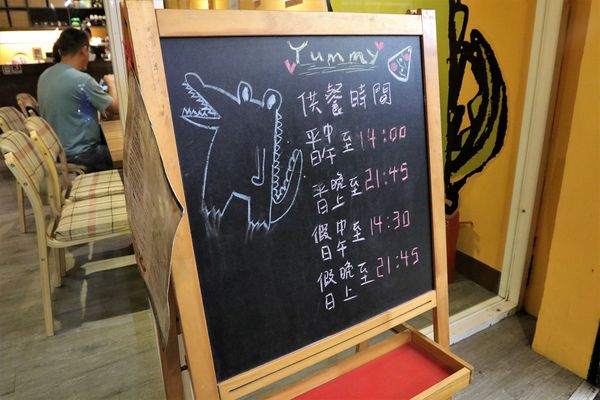 Yummy
供餐時間
平日中午至14:00
平日晚上至21:45
假日中午至14:30
假日晚上至21:45